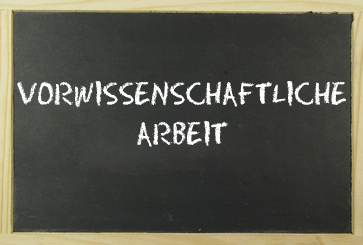 VORWISSENSCHAFTLICHE
ARBEIT